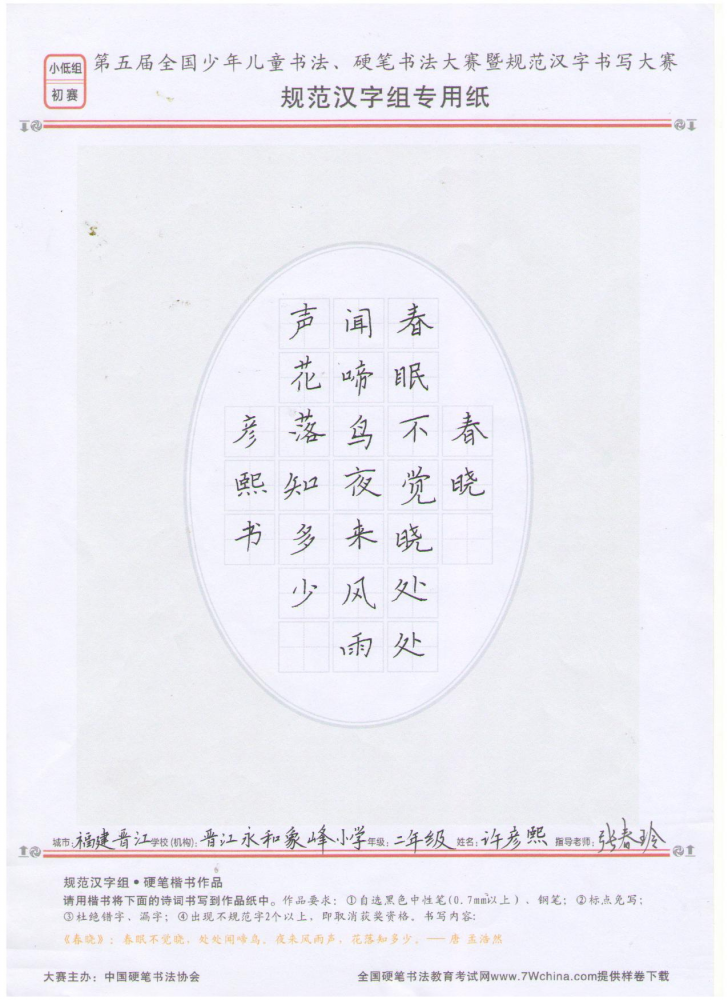 小低组
初赛
第五届全国少年儿童书法、硬笔书法大赛暨规范汉字书写大赛
规范汉字组专用纸
春晓
春眠不觉晓处处
闻啼鸟夜来风雨
声花落知多少
彦熙书
城市:福建晋江学校(机构):晋江永和象峰小学年级:二年级姓名:许彦熙指导老师:张春玲
规范汉字组•硬笔楷书作品
请用楷书将下面的诗词书写到作品纸中。作品要求:①自选黑色中性笔(0.7mm以上)、钢笔;②标点免写;
③杜绝错字、漏字;④出现不规范字2个以上,即取消获奖资格。书写内容:
《春晓》:春眠不觉晓,处处闻啼鸟。夜来风雨声,花落知多少。——唐 孟浩然
大赛主办:中国硬笔书法协会
全国硬笔书法教育考试网www.7Wchina.com提供样卷下载